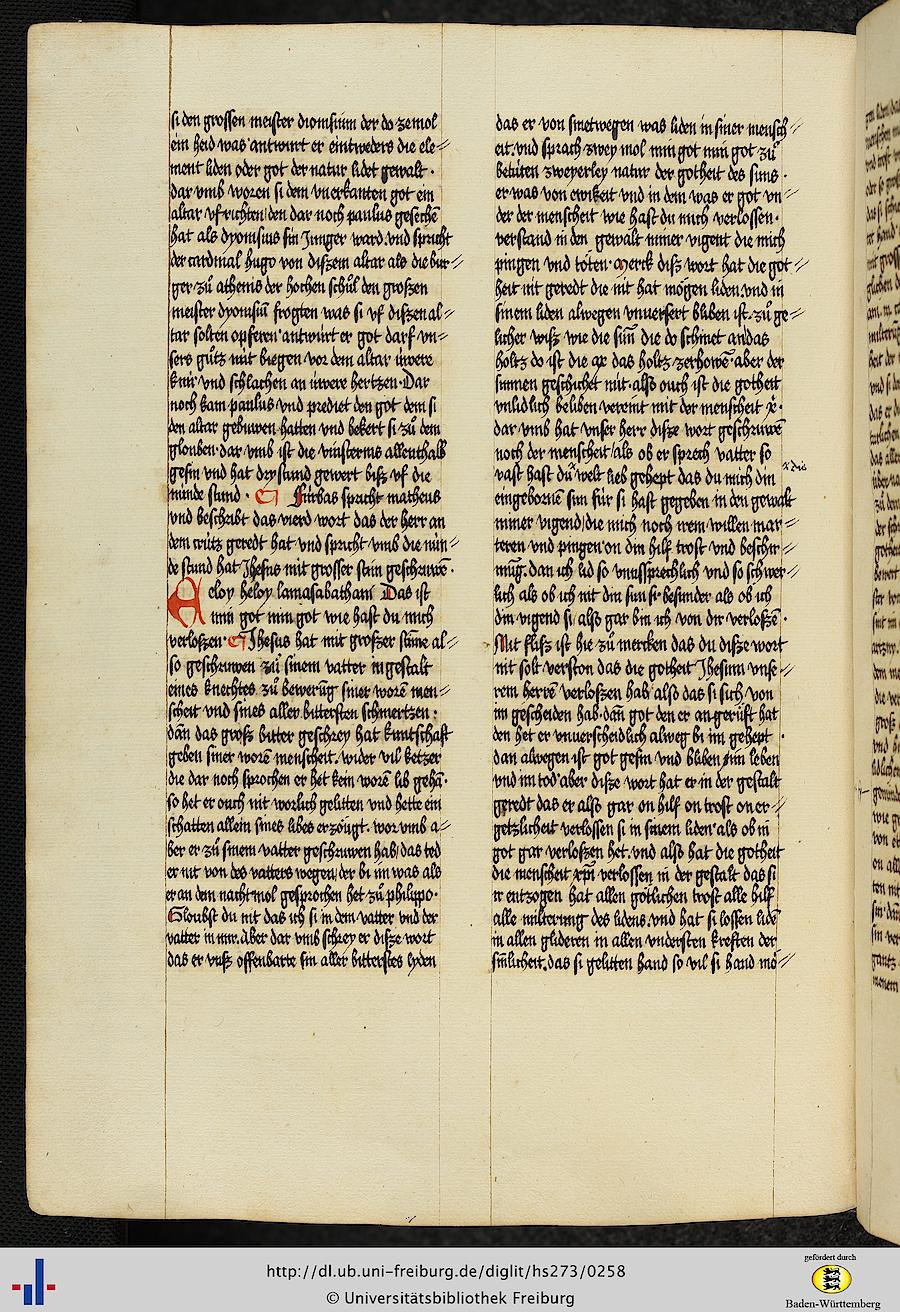 si den grossen meister dionisium der do zemol
ein heid was antwurt er eintweders die ele=
ment liden oder got der natur lidet gewalt ·
dar vmb woren si dem vnerkanten got ein
altar vfrichten den dar noch paulus gesechē
hat als dyonisius sin Junger ward vnd spricht
der cardinal hugo von diszem altar als die bur=
ger zů athenis der hochen schůl den groszen
meister dyonisiū frogten was si vf diszen al=
tar solten opferen antwurt er got darf vn=
sers gůtz nüt biegen vor dem altar üwere
knü vnd schlachen an üwere hertzen · Dar
noch kam paulus vnd prediet den got dem si
den altar gebuwen hatten vnd bekert si zů dem
glouben · dar vmb ist die vinsternis allenthalb
gesin vnd hat dry stund gewert bisz vf die
nünde stund · Fürbas spricht matheus
vnd beschribt das vierd wort das der herr an
dem crütz geredt hat vnd spricht vmb die nün=
de stund hat Jhesus mit grosser stim geschruwē ·
Aeloy heloy lamasabathani Das ist
min got min got wie hast du mich
verloszen · Jhesus hat mit groszer stime al=
so geschruwen zů sinem vatter in gestalt
eines knechtes zů bewerūg siner worē men=
scheit vnd sines aller bittersten schmertzen :
dan̄ das grosz bitter geschrey hat kuntschaft
geben siner worē menscheit · wider vil ketzer
die dar noch sprochen er het kein worē lib gehā ·
so het er ouch nit worlich gelitten vnd hette ein
schatten allein sines libes erzöugt · wor vmb a=
ber er zů sinem vatter geschruwen hab das ted
er nit von des vatters wegen der bi im was als
er an dem nachtmol gesprochen het zů philippo ·
Gloubst du nit das ich si in dem vatter vnd der
vatter in mir · Aber dar vmb schrey er disze wort
das er vnsz offenbarte sin aller bitterstes lyden
das er von sinetwegen was liden in siner mensch=
eit · vnd sprach zwey mol min got min got zů
betüten zweyerley natur der gotheit des suns ·
er was von ewikeit vnd in dem was er got vn=
der der menscheit wie hast du mich verlossen ·
verstand in den gewalt miner vigent die mich
pingen vnd töten · Merck disz wort hat die got=
heit nit geredt die nit hat mögen liden vnd in
sinem liden alwegen vnuersert bliben ist · zů ge=
licher wisz wie die sun̄ die do schinet an das
holtz do ist die ax das holtz zerhowē aber der
sunnen geschichet nüt · also ouch ist die gotheit
vnlidlich beliben vereint mit der menscheit x̄ ·
dar vmb hat vnser herr disze wort geschruwē
noch der menscheit als ob er sprech vatter so
vast hast du welt lieb gehept das du mich din
x die
eingebornē sun für si hast gegeben in den gewalt
miner vigend die mich noch irem willen mar=
teren vnd pingen on din hilf trost vnd beschir=
mūg · dan ich lid so vnussprechlich vnd so schwer=
lich als ob ich nit din sun si besunder als ob ich
din vigend si also gar bin ich von dir verloszē ·
Mit flisz ist hie zů mercken das du disze wort
nit solt verston das die gotheit Jhesum vnse=
ren herrē verloszen hab also das si sich von
im gescheiden hab · dan̄ got den er angerüft hat
den het er vnuerscheidlich alweg bi im gehept ·
dan alwegen ist got gesin vnd bliben im leben
vnd im tod aber disze wort hat er in der gestalt
geredt das er also gar on hilf on trost on er=
getzlicheit verlossen si in sinem liden als ob in
got gar verloszen het · vnd also hat die gotheit
die menscheit xp̄i verlossen in der gestalt das si
ir entzogen hat allen götlichen trost alle hilf
alle milterung des lidens · vnd hat si lossen lidē
in allen glideren in allen vndersten kreften der
sin̄licheit · das si gelitten hand so vil si hand mö=
http://dl.ub.uni-freiburg.de/diglit/hs273/0258
© Universitätsbibliothek Freiburg
gefördert durch
Baden-Württemberg